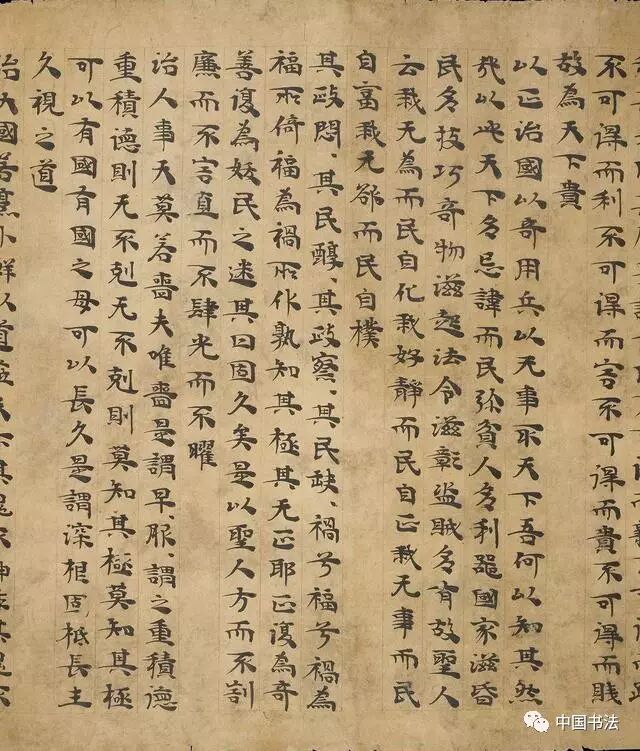 不可得而利不可得而害不可得而貴不可得而賤
故為天下貴
以正治國以奇用兵以无事取天下吾何以知其然
哉以此天下多忌諱而民弥貧人多利器國家滋昏
民多技巧奇物滋起法令滋彰盜賊多有故聖人
云我无為而民自化我好靜而民自正我无事而民
自富我无欲而民自樸
其政悶〻其民醇〻其政察〻其民缺〻禍兮福兮禍為
福所倚福為禍所伏孰知其極其无正耶正復為奇
善復為妖民之迷其日固久矣是以聖人方而不割
廉而不害直而不肆光而不曜
治人事天莫若嗇夫唯嗇是謂早〻服〻謂之重積德
重積德則无不剋无不剋則莫知其極莫知其極
可以有國有國之母可以長久是謂深根固柢長生
久視之道
治大國若烹小鮮以道
中国书法